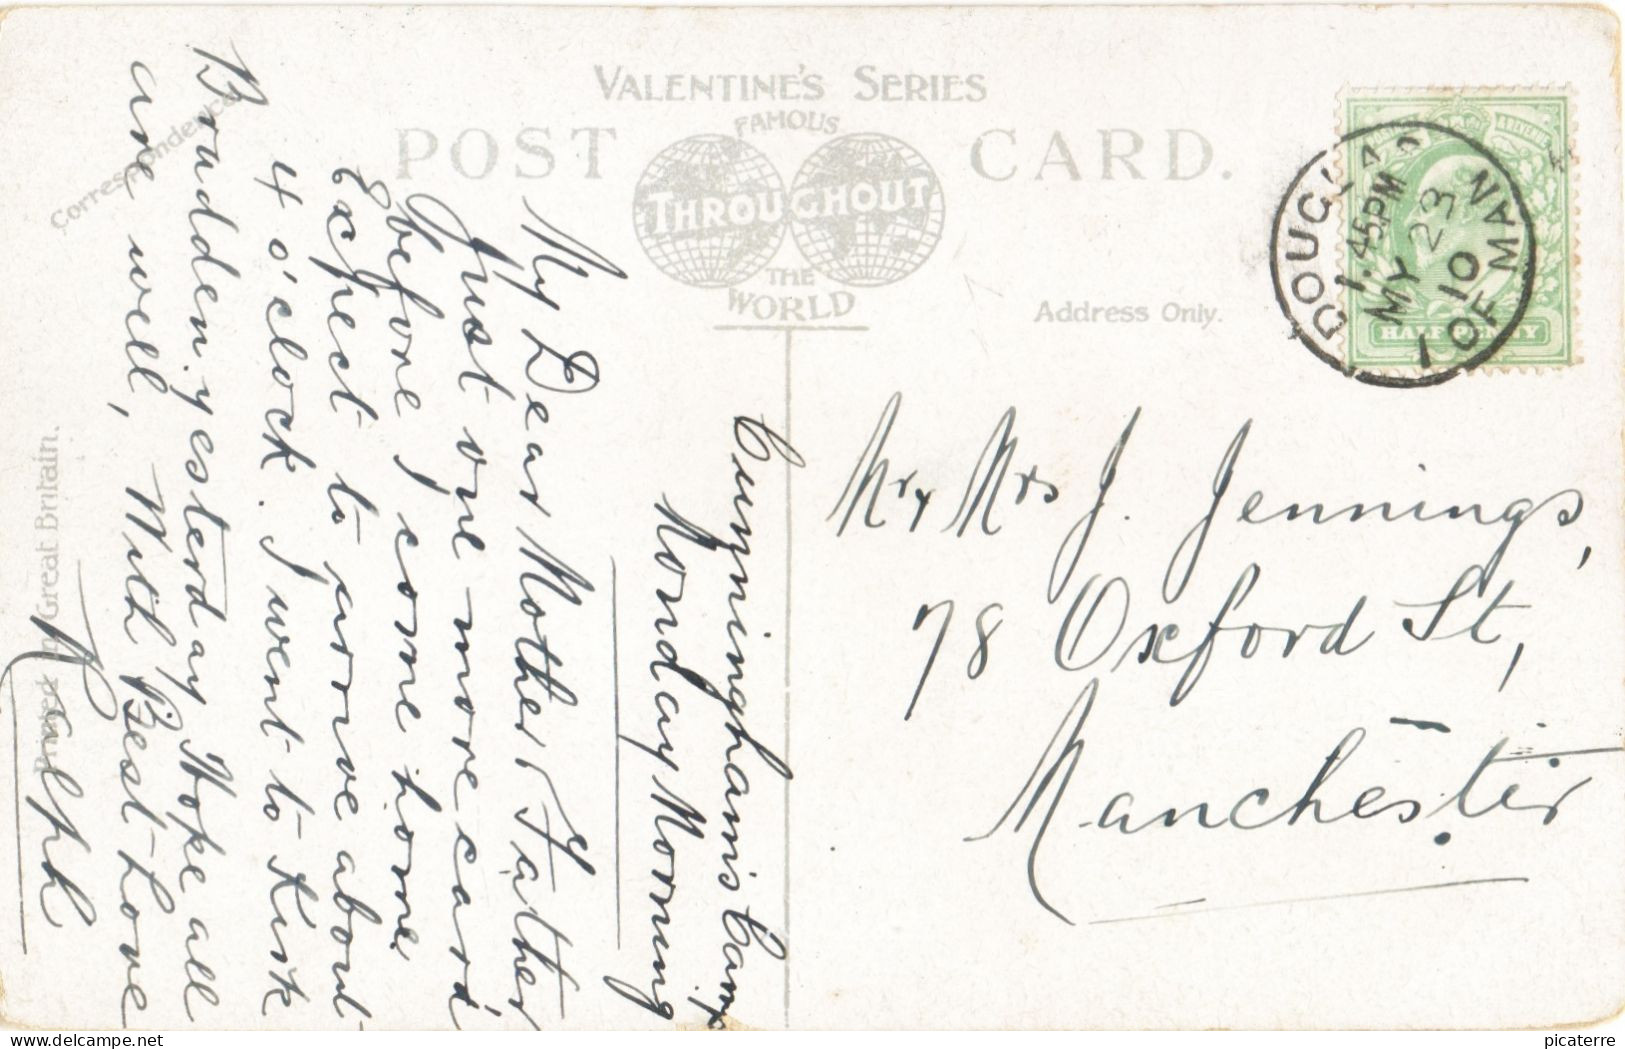 VALENTINE'S SERIES
FAMOUS
POST CARD.
THROUGHOUT
THE
WORLD
Correspondence.
Address Only.
Printed in Great Britain.
DOUGLAS
1.45PM
MY 23
10
I OF MAN
HALFPENNY
Cunningham's Camp
Monday Morning
My Dear Mother & Father
Just one more card
before I come home.
Expect to arrive about
4 o'clock. I went to Kirk
Bradden yesterday Hope all
are well, With Best Love
Ralph
Mr & Mrs J. Jennings,
78 Oxford St,
Manchester
picaterre
delcampe.net